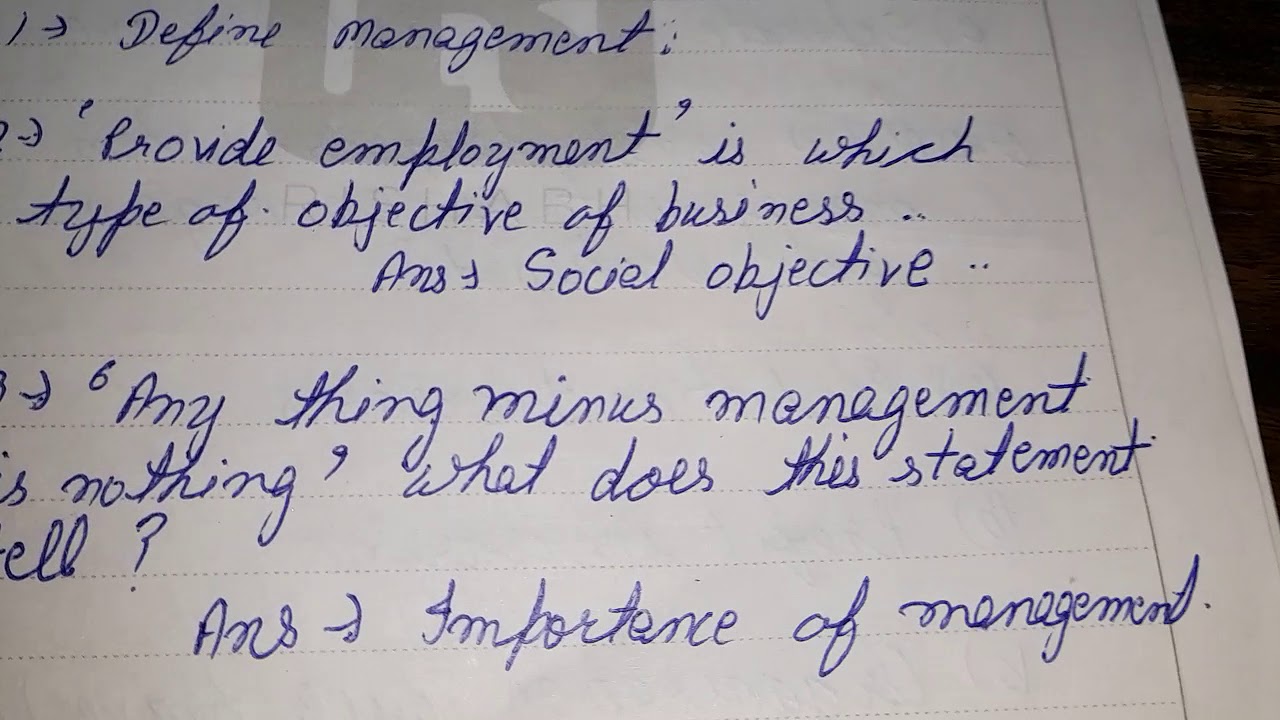 1) → Define management:
2 → 'Provide employment' is which
type of objective of business ..
Ans → Social objective ..
3 → 'Any thing minus management
is nothing' what does this statement
tell ?
Ans → Importance of management.